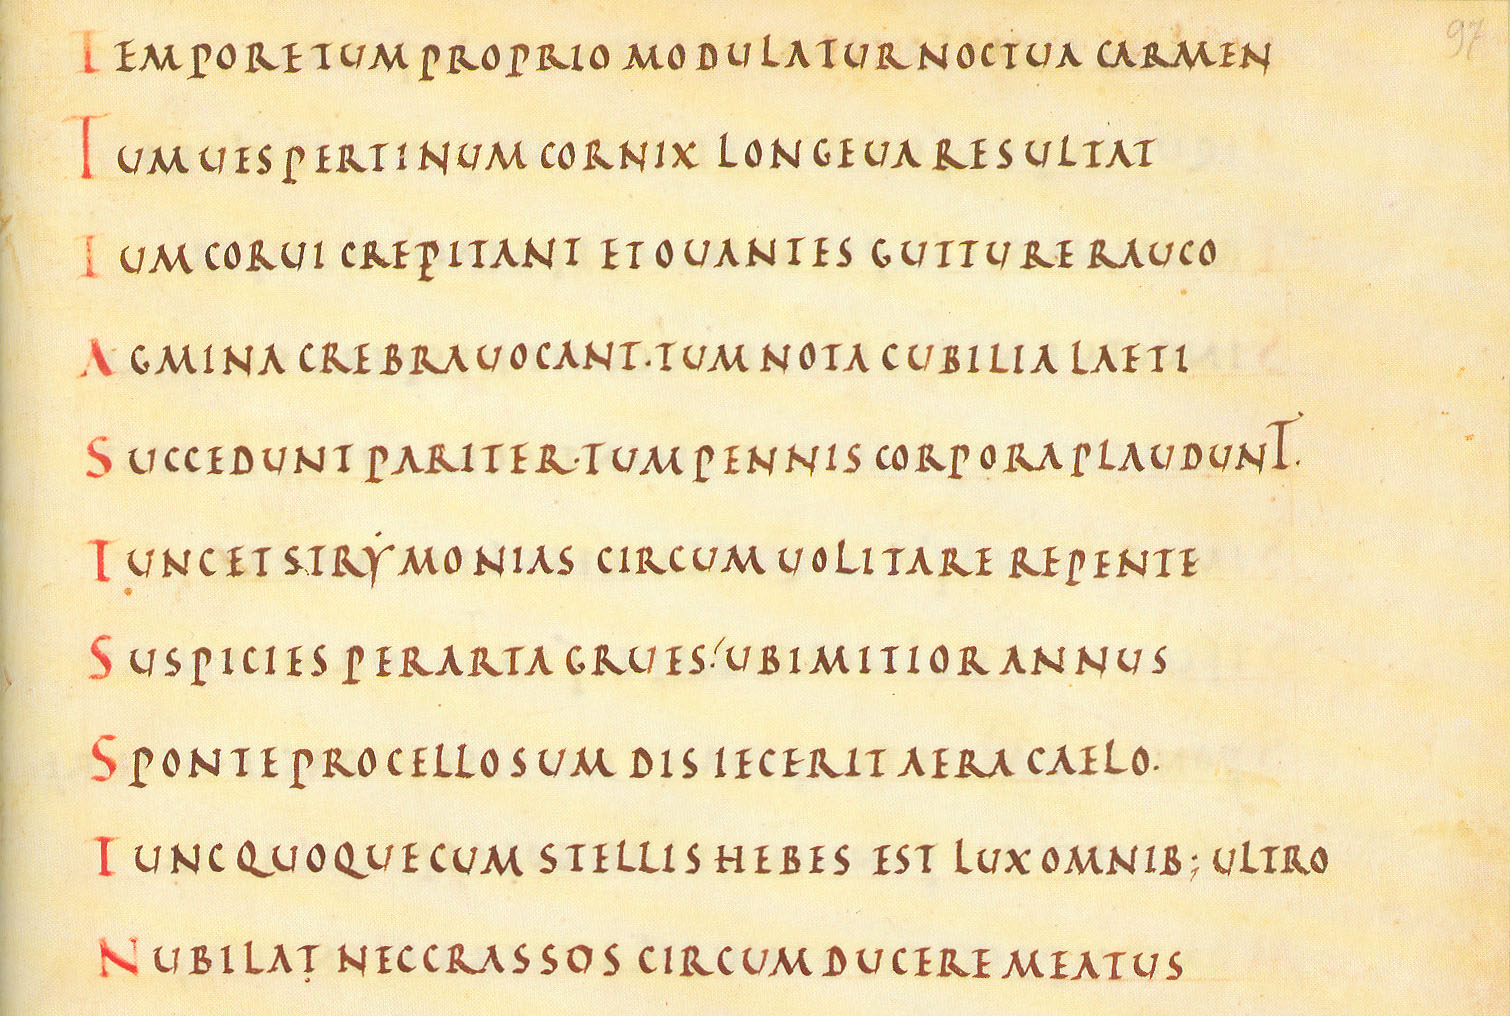 TEMPORE TUM PROPRIO MODULATUR NOCTUA CARMEN
97
TUM UESPERTINUM CORNIX LONGEUA RESULTAT
TUM CORUI CREPITANT ET OUANTES GUTTURE RAUCO
AGMINA CREBRA UOCANT. TUM NOTA CUBILIA LAETI
SUCCEDUNT PARITER. TUM PENNIS CORPORA PLAUDUNT.
TUNC ET STRẎMONIAS CIRCUM UOLITARE REPENTE
SUSPICIES PER ARTA GRUES: UBI MITIOR ANNUS
SPONTE PROCELLOSUM DISIECERIT AERA CAELO.
TUNC QUOQUE CUM STELLIS HEBES EST LUX OMNIB; ULTRO
NUBILAT NEC CRASSOS CIRCUMDUCERE MEATUS